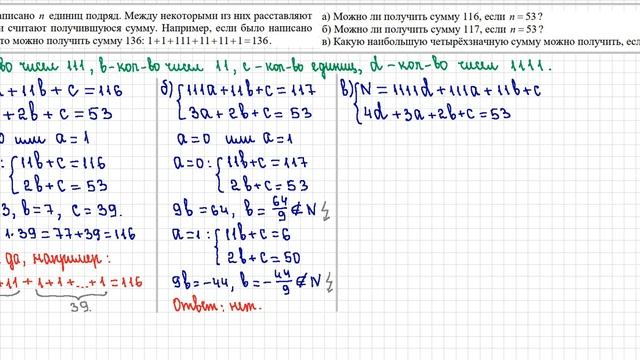 аписано n единиц подряд. Между некоторыми из них расставляют
и считают получившуюся сумму. Например, если было написано
то можно получить сумму 136: 1+1+111+11+11+1=136.
а) Можно ли получить сумму 116, если n=53?
б) Можно ли получить сумму 117, если n=53?
в) Какую наибольшую четырёхзначную сумму можно получить, есл
во чисел 111, b-кол-во чисел 11, c-кол-во единиц, d-кол-во чисел 1111.
+11b+c=116
+2b+c=53
или a=1
11b+c=116
2b+c=53
b=7, c=39.
1·39=77+39=116
да, например:
+11+1+1+...+1=116
39.
б) 111a+11b+c=117
3a+2b+c=53
a=0 или a=1
a=0: 11b+c=117
2b+c=53
9b=64, b=64/9∉N
a=1: 11b+c=6
2b+c=50
9b=-44, b=-44/9∉N
Ответ: нет.
в) N=1111d+111a+11b+c
4d+3a+2b+c=53